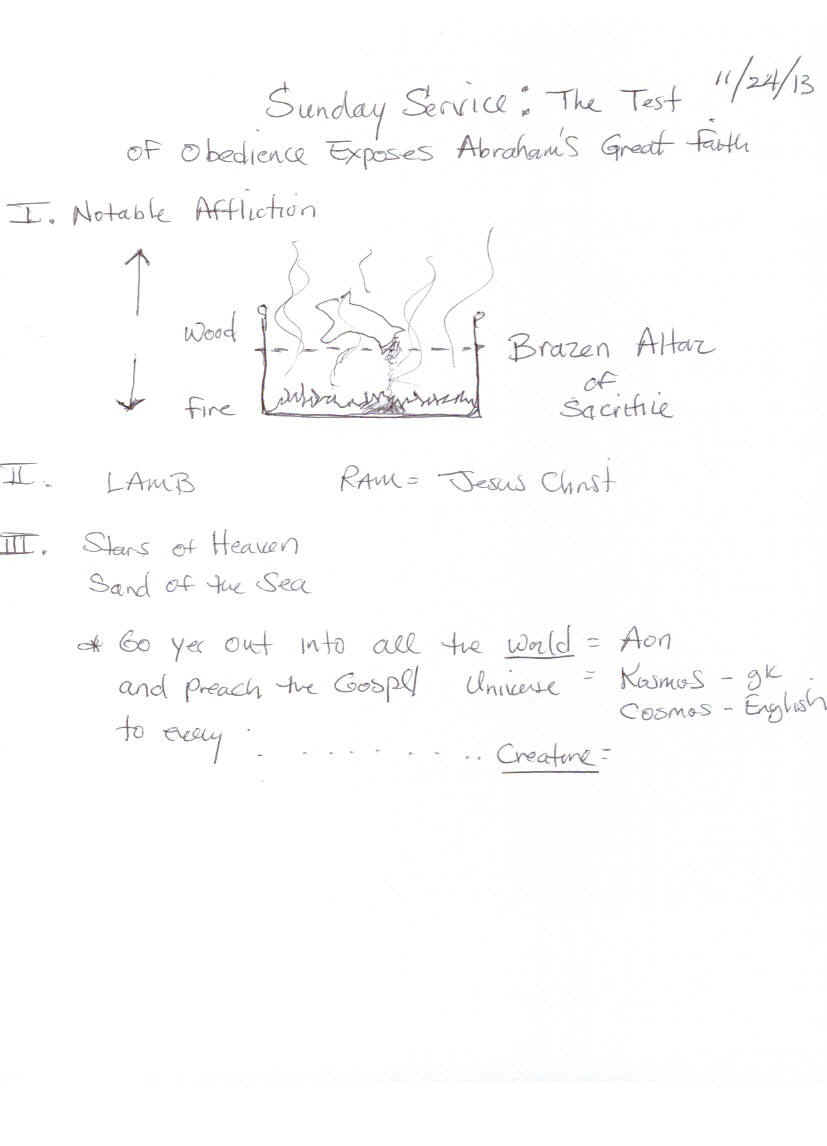 11/24/13
Sunday Service: The Test
of Obedience Exposes Abraham's Great Faith
I. Notable Affliction
Wood
Fire
Brazen Altar
of
Sacrifice
II. LAMB RAM = Jesus Christ
III. Stars of Heaven
Sand of the Sea
* Go yee out into all the world = Aon
and preach the Gospel Universe = Kosmos - gk
Cosmos - English
to every . . . . . . . . . . Creature =